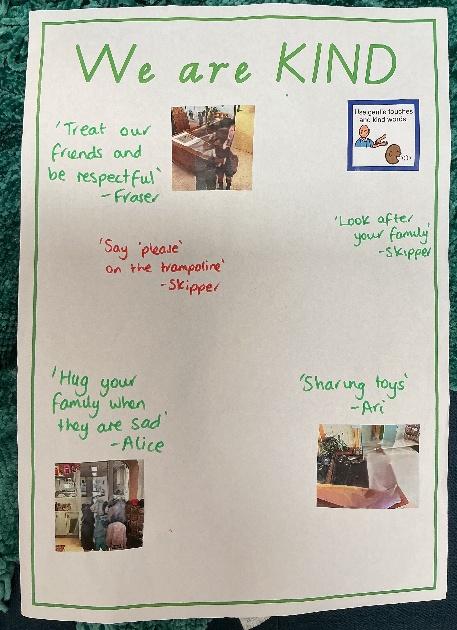 We are KIND
'Treat our
friends and
be respectful'
-Fraser
Use gentle touches
and kind words
'Look after
your family'
-Skipper
'Say 'please'
on the trampoline'
-Skipper
'Hug your
family when
they are sad'
-Alice
'Sharing toys'
-Ari